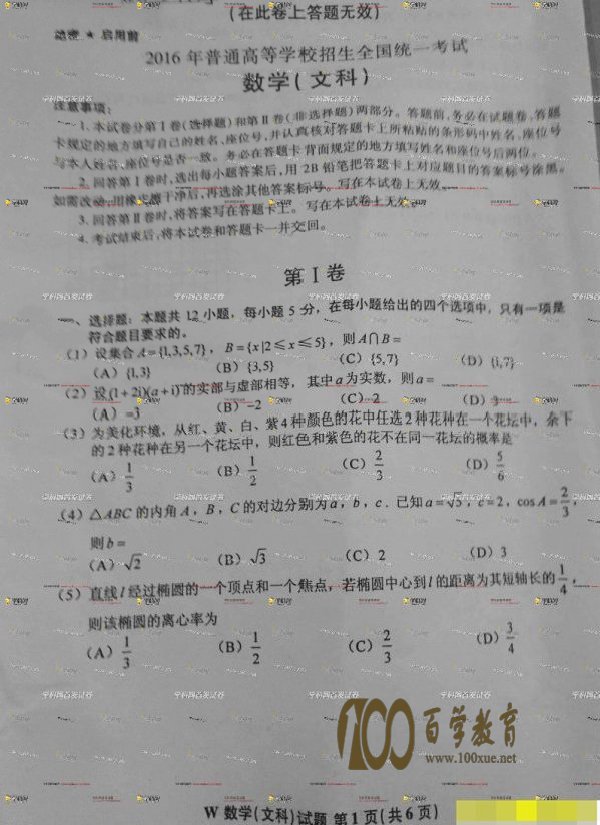 (在此卷上答题无效)
绝密 ★ 启用前
2016 年普通高等学校招生全国统一考试
数学(文科)
注意事项:
1. 本试卷分第Ⅰ卷(选择题)和第Ⅱ卷(非选择题)两部分。答题前,务必在试题卷、答题
卡规定的地方填写自己的姓名、座位号,并认真核对答题卡上所粘贴的条形码中姓名、座位号
与本人姓名、座位号是否一致。务必在答题卡背面规定的地方填写姓名和座位号后两位。
2. 回答第Ⅰ卷时,选出每小题答案后,用 2B 铅笔把答题卡上对应题目的答案标号涂黑。
如需改动,用橡皮擦干净后,再选涂其他答案标号。写在本试卷上无效。
3. 回答第Ⅱ卷时,将答案写在答题卡上。写在本试卷上无效。
4. 考试结束后,将本试卷和答题卡一并交回。
第Ⅰ卷
一、选择题:本题共 12 小题,每小题 5 分,在每小题给出的四个选项中,只有一项是
符合题目要求的。
(1) 设集合 A={1,3,5,7}, B={x|2≤x≤5}, 则 A∩B=
(A) {1,3} (B) {3,5} (C) {5,7} (D) {1,7}
(2) 设(1+2i)(a+i)的实部与虚部相等, 其中 a 为实数, 则 a=
(A) -3 (B) -2 (C) 2 (D) 3
(3) 为美化环境, 从红、黄、白、紫 4 种颜色的花中任选 2 种花种在一个花坛中, 余下
的 2 种花种在另一个花坛中, 则红色和紫色的花不在同一花坛的概率是
(A) 1/3 (B) 1/2 (C) 2/3 (D) 5/6
(4) △ABC 的内角 A, B, C 的对边分别为 a, b, c. 已知 a=√5, c=2, cos A=2/3,
则 b=
(A) √2 (B) √3 (C) 2 (D) 3
(5) 直线 l 经过椭圆的一个顶点和一个焦点, 若椭圆中心到 l 的距离为其短轴长的 1/4,
则该椭圆的离心率为
(A) 1/3 (B) 1/2 (C) 2/3 (D) 3/4
100 百学教育
www.100xue.net
W 数学(文科)试题 第1页(共6页)